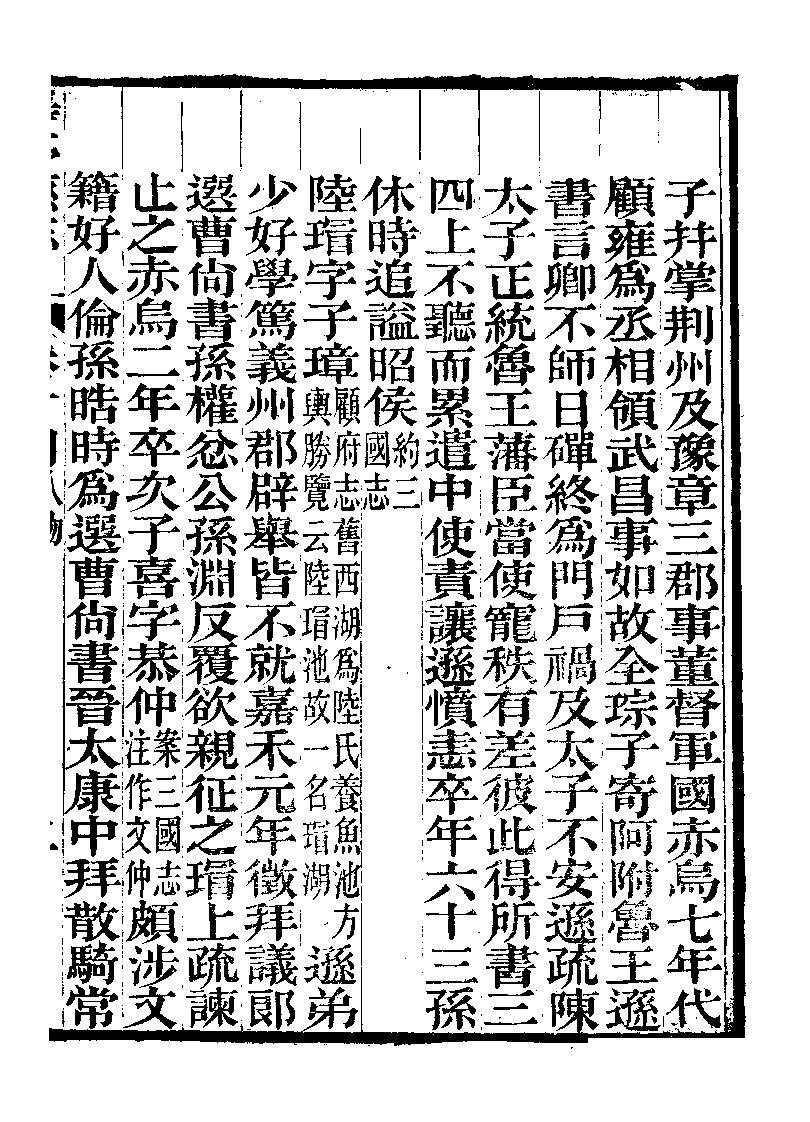 子并掌荆州及豫章三郡事董督軍國赤烏七年代
顧雍爲丞相領武昌事如故全琮子寄阿附魯王遜
書言卿不師日磾終爲門戸禍及太子不安遜疏陳
太子正統魯王藩臣當使寵秩有差彼此得所書三
四上不聽而累遣中使責讓遜憤恚卒年六十三孫
休時追謚昭侯約三國志
陸瑁字子璋顧府志舊西湖爲陸氏養魚池方輿勝覽云陸瑁池故一名瑁湖遜弟
少好學篤義州郡辟舉皆不就嘉禾元年徵拜議郎
選曹尙書孫權忿公孫淵反覆欲親征之瑁上疏諫
止之赤烏二年卒次子喜字恭仲案三國志注作文仲頗涉文
籍好人倫孫晧時爲選曹尙書晉太康中拜散騎常